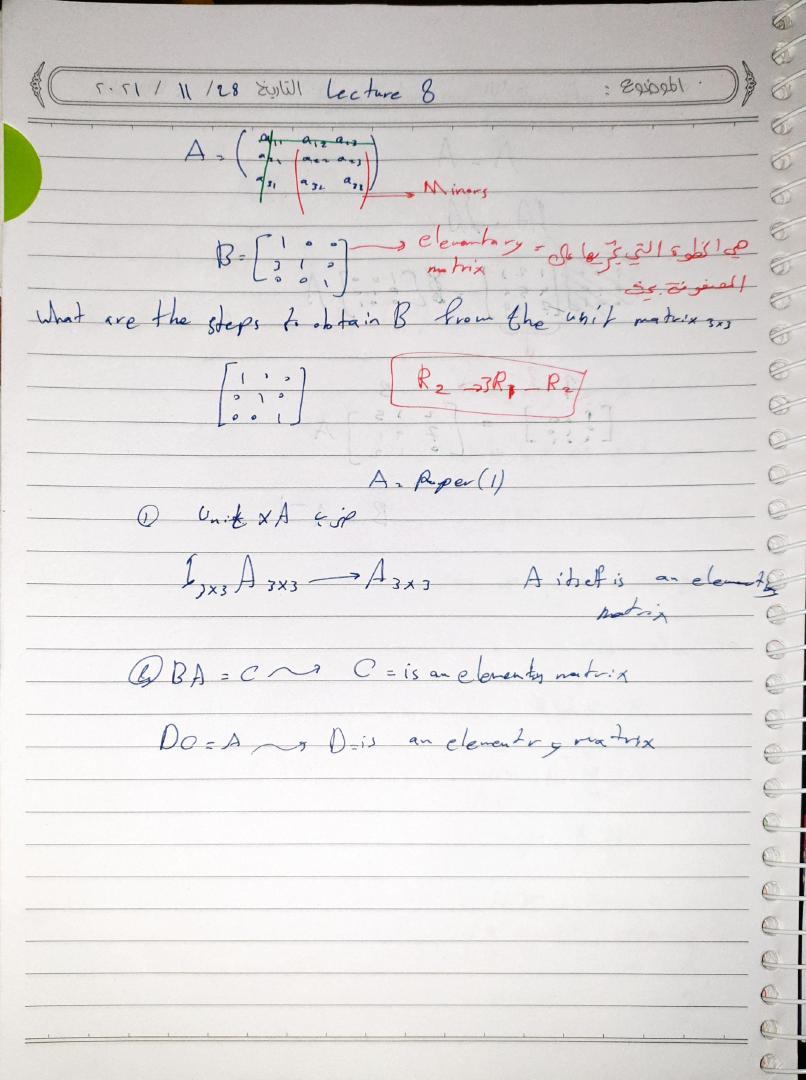 الموضوع :
التاريخ 28/ 11 / ٢٠٢١ Lecture 8
A = ( a11 a12 a13
a21 a22 a23
a31 a32 a33 )
→ Minors
B = [ 1 0 0
3 1 0
0 0 1 ]
→ elementary matrix = هي الخطوة التي
المصفوفة
What are the steps to obtain B from the unit matrix 3x3
[ 1 0 0
0 1 0
0 0 1 ]
R2 → 3R1 - R2
A = Paper (1)
① Unit x A ضرب
I 3x3 A 3x3 → A 3x3 A itself is an elementy
matrix
BA = C C = is an elementy matrix
A D = is an elementry matrix